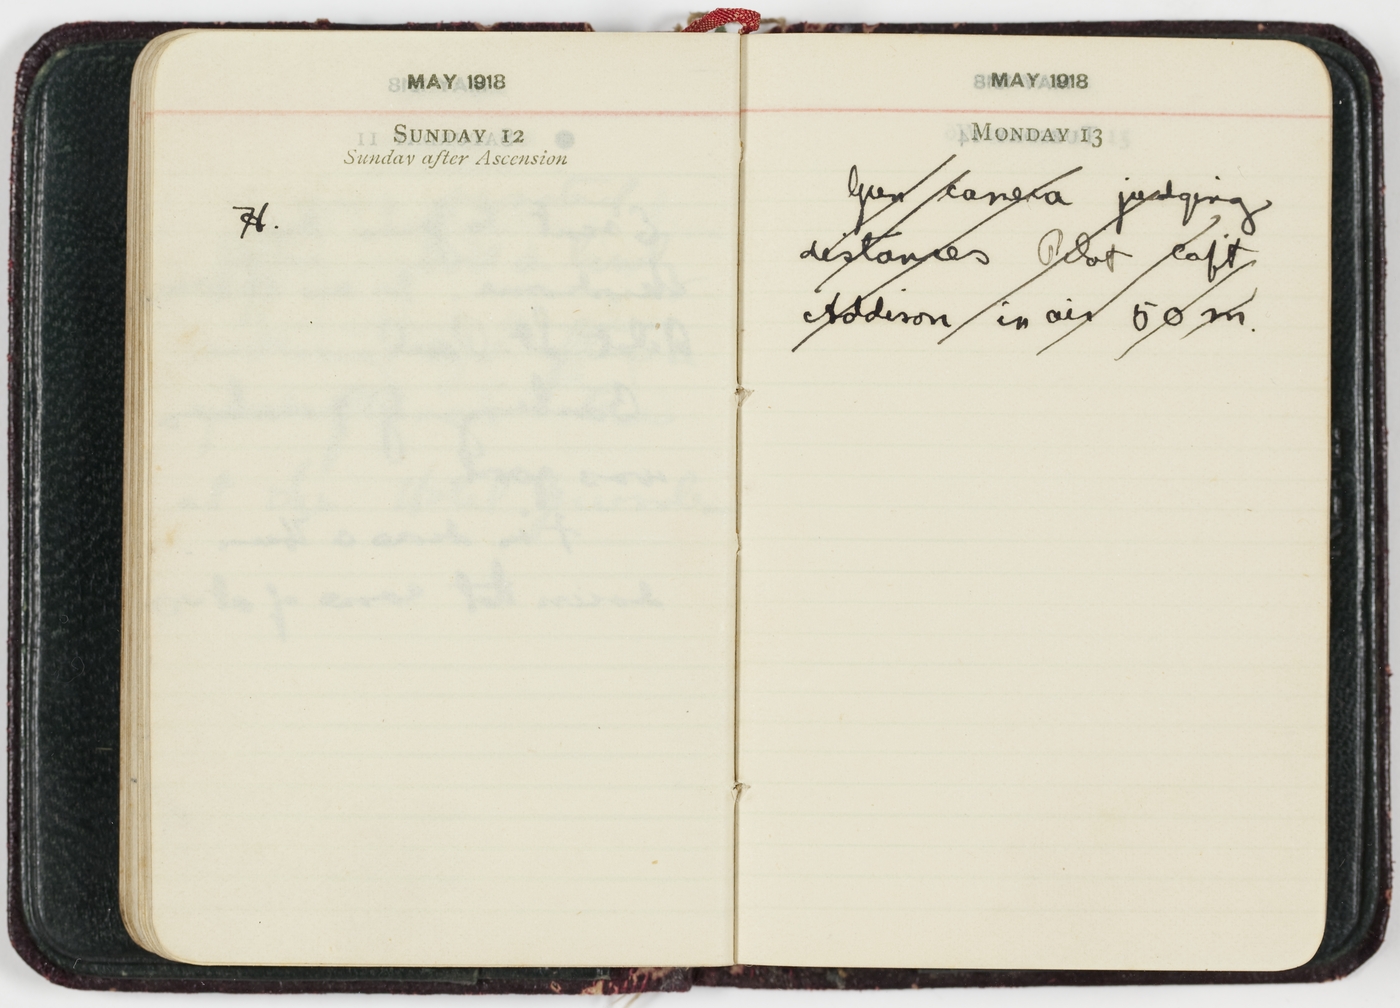 MAY 1918
SUNDAY 12
Sunday after Ascension
H.
MAY 1918
MONDAY 13
Gun camera judging
distances Pilot Capt
Addison in air 50 m.